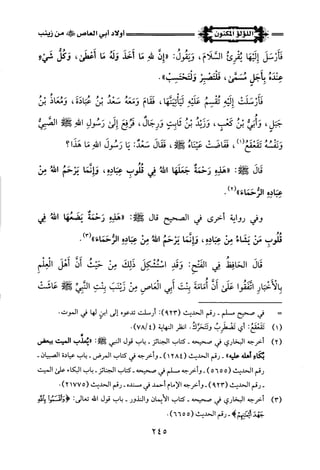 اللؤلؤ المكنون
أولاد أبي العاص ﷺ من زينب
فَأَرْسَلَ إِلَيْهَا يُقْرِئُ السَّلَامَ، وَيَقُولُ: «إِنَّ لِلَّهِ مَا أَخَذَ وَلَهُ مَا أَعْطَى، وَكُلُّ شَيْءٍ
عِنْدَهُ بِأَجَلٍ مُسَمًّى، فَلْتَصْبِرْ وَلْتَحْتَسِبْ».
فَأَرْسَلَتْ إِلَيْهِ تُقْسِمُ عَلَيْهِ لَيَأْتِيَنَّهَا، فَقَامَ وَمَعَهُ سَعْدُ بْنُ عُبَادَةَ، وَمُعَاذُ بْنُ
جَبَلٍ، وَأُبَيُّ بْنُ كَعْبٍ، وَزَيْدُ بْنُ ثَابِتٍ وَرِجَالٌ، فَرُفِعَ إِلَى رَسُولِ اللهِ ﷺ الصَّبِيُّ
وَنَفْسُهُ تَقَعْقَعُ(١)، فَفَاضَتْ عَيْنَاهُ ﷺ، فَقَالَ سَعْدٌ: يَا رَسُولَ اللهِ مَا هَذَا؟
قَالَ ﷺ: «هَذِهِ رَحْمَةٌ جَعَلَهَا اللهُ فِي قُلُوبِ عِبَادِهِ، وَإِنَّمَا يَرْحَمُ اللهُ مِنْ
عِبَادِهِ الرُّحَمَاءَ»(٢).
وفي رواية أخرى في الصحيح قال ﷺ: «هَذِهِ رَحْمَةٌ يَضَعُهَا اللهُ فِي
قُلُوبِ مَنْ يَشَاءُ مِنْ عِبَادِهِ، وَإِنَّمَا يَرْحَمُ اللهُ مِنْ عِبَادِهِ الرُّحَمَاءَ»(٣).
قَالَ الْحَافِظُ فِي الْفَتْحِ: وَقَدِ اسْتُشْكِلَ ذَلِكَ مِنْ حَيْثُ أَنَّ أَهْلَ الْعِلْمِ
بِالْأَخْبَارِ اتَّفَقُوا عَلَى أَنَّ أُمَامَةَ بِنْتَ أَبِي الْعَاصِ مِنْ زَيْنَبَ بِنْتِ النَّبِيِّ ﷺ عَاشَتْ
= في صحيح مسلم - رقم الحديث (٩٢٣): أرسلت تدعوه إلى ابن لها في الموت.
(١) تَقَعْقَعُ: أي تَضْطَرِبُ وَتَتَحَرَّكُ. انظر النهاية (٧٨/٤).
(٢) أخرجه البخاري في صحيحه - كتاب الجنائز - باب قول النبي ﷺ: «يُعذَّب الميت ببعض
بُكاء أهله عليه» - رقم الحديث (١٢٨٤) - وأخرجه في كتاب المرضى - باب عيادة الصبيان -
رقم الحديث (٥٦٥٥) - وأخرجه مسلم في صحيحه - كتاب الجنائز - باب البكاء على الميت
- رقم الحديث (٩٢٣) - وأخرجه الإمام أحمد في مسنده - رقم الحديث (٢١٧٧٥).
(٣) أخرجه البخاري في صحيحه - كتاب الأيمان والنذور - باب قول الله تعالى: ﴿وَأَقْسَمُوا بِاللَّهِ
جَهْدَ أَيْمَانِهِمْ﴾ - رقم الحديث (٦٦٥٥).
٢٤٥